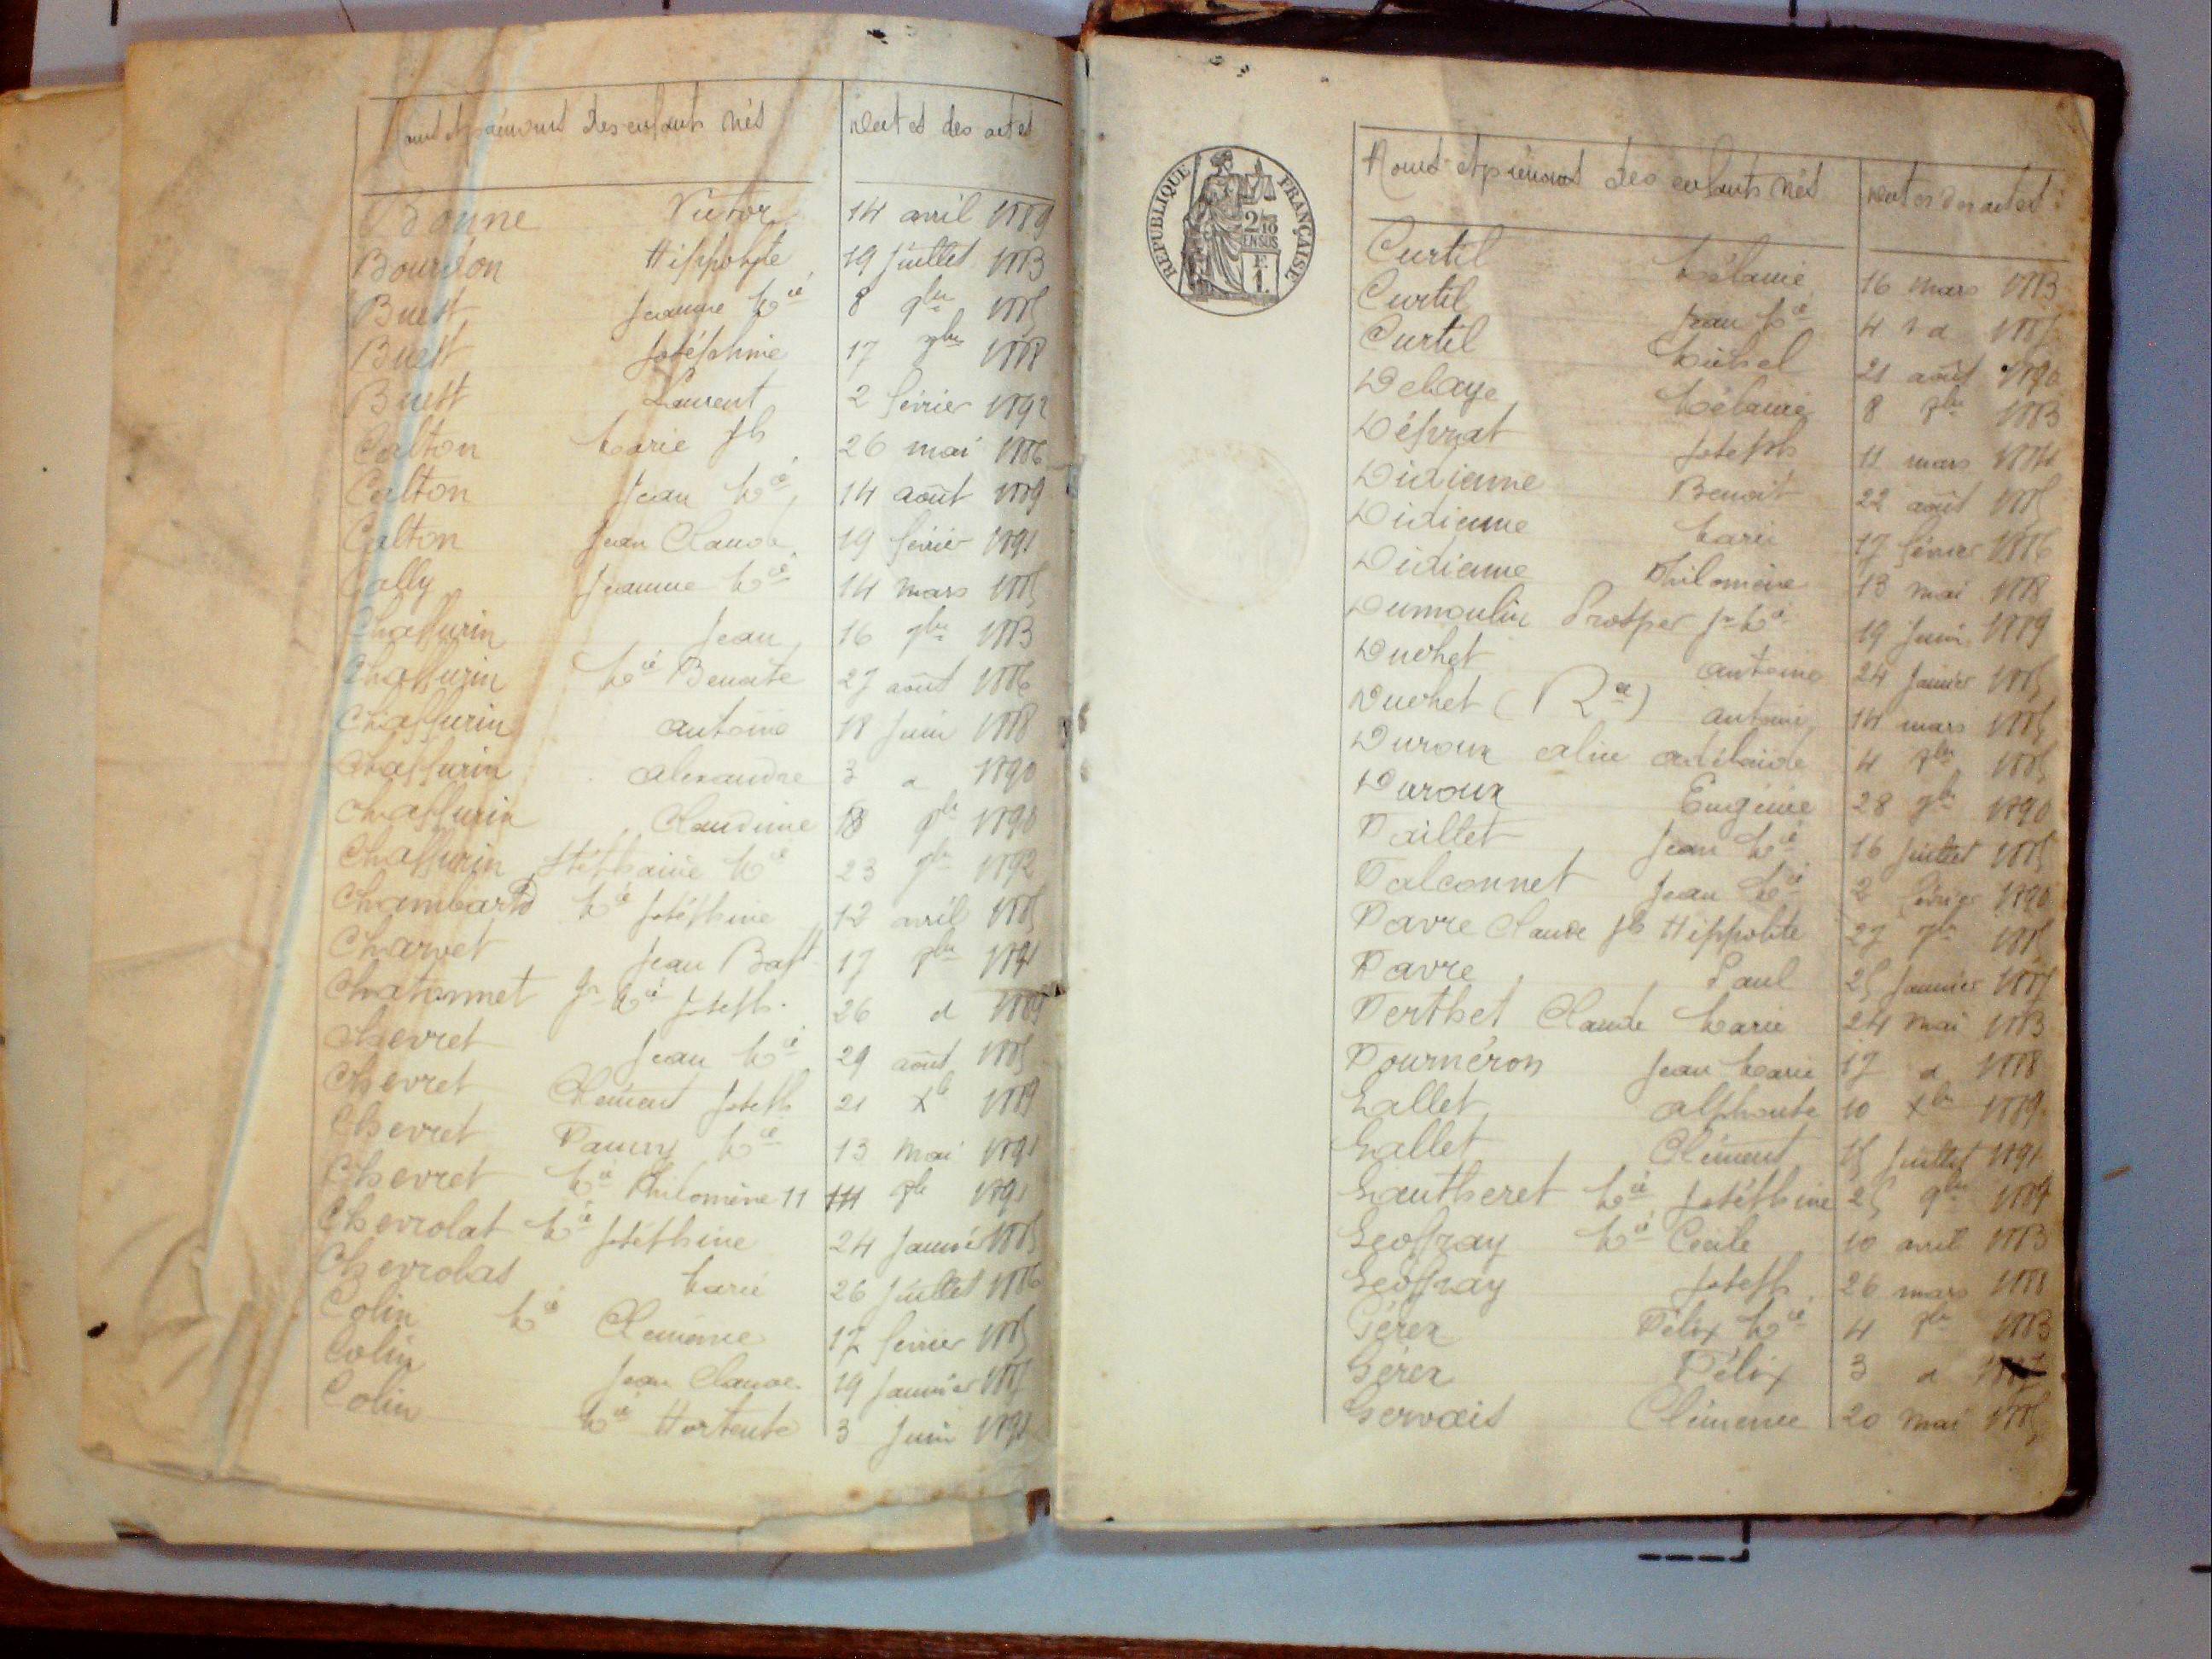 Noms et prénoms des enfants nés Dates des actes
Bonne Victor 14 avril 1889
Bourdon Hippolyte 19 juillet 1883
Buest Jeanne Mie 8 9bre 1885
Buest Joséphine 17 1888
Buest Laurent 2 février 1892
Calton Marie Jh 26 mai 1886
Calton Jean Mie 14 août 1889
Calton Jean Claude 19 février 1891
Cally Jeanne Mie 14 mars 1885
Chaffurin Jean 16 1883
Chaffurin Mie Benoite 27 août 1886
Chaffurin antoine 18 juin 1888
Chaffurin alexandre 3 d 1890
Chaffurin Claudine 18 1890
Chaffurin Stéphanie Mie 23 1892
Chambard Mie Joséphine 12 avril 1885
Charvet Jean Bapt 17 1891
Chatonnet Jn Mie Joseph 26 d
Chevret Jean Mie 29 août 1885
Chevret Clément Joseph 21 Xb 1889
Chevret Fanny Mie 13 mai 1891
Chevret Mie Philomène 11 1891
Chevrolat Mie Joséphine 24 janvier 1885
Chevrolas Marie 26 juillet 1886
Colin Mie Clémence 17 février 1885
Colin Jean Claude 19 janvier 1887
Colin Mie Hortense 3 juin
RÉPUBLIQUE FRANÇAISE
2/10
EN SUS
E.
1.
Noms et prénoms des enfants nés Dates des actes
Curtil Mélanie 16 mars 1883
Curtil Jean Mie 4 d 1887
Curtil Michel 21 août 1890
Delaye Mélanie 8 1883
Déprat Joseph 11 mars 1884
Didienne Benoit 22 août 1885
Didienne Marie 17 février 1886
Didienne Philomène 13 mai 1888
Dumoulin Prosper Jn Mie 19 juin 1889
Duchet antoine 24 janvier 1885
Duchet (Ron) antoine 14 mars 1885
Duroux aline adélaïde 4 1885
Duroux Eugénie 28 1890
Faillet Jean Mie 16 juillet 1885
Falconnet Jean Mie 2 février 1890
Favre Claude Jh Hippolite 27 1885
Favre Paul 25 janvier 1887
Ferthet Claude Marie 24 mai 1883
Fournéron Jean Marie 17 d 1888
Gallet alphonse 10 Xbre 1889
Gallet Clément 15 juillet 1891
Gautheret Mie Joséphine 25 9bre
Geoffray Mie Cécile 10 avril 1883
Geoffray Joseph 26 mars 1888
Gérex Félix Mie 4 1883
Gérex Félix 3 d
Gervais Clémence 20 mai 1885